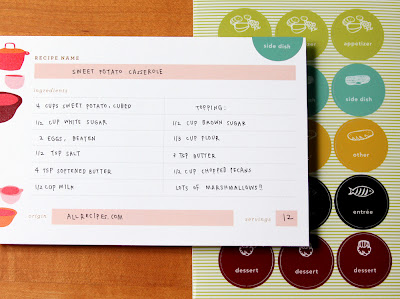 side dish
RECIPE NAME
SWEET POTATO CASSEROLE
ingredients
4 CUPS SWEET POTATO, CUBED
1/2 CUP WHITE SUGAR
2 EGGS, BEATEN
1/2 TSP SALT
4 TSP SOFTENED BUTTER
1/2 CUP MILK
TOPPING:
1/2 CUP BROWN SUGAR
1/3 CUP FLOUR
3 TSP BUTTER
1/2 CUP CHOPPED PECANS
LOTS OF MARSHMALLOWS!!
origin
ALLRECIPES.COM
servings
12
appetizer
side dish
other
entrée
dessert
dessert